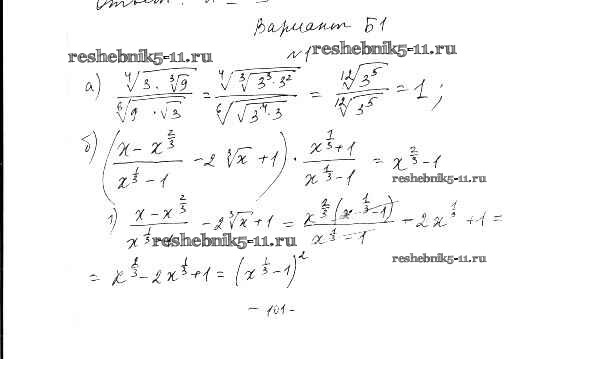 Вариант Б1
reshebnik5-11.ru
№1 reshebnik5-11.ru
а) ⁴√(3·³√9) / ⁶√(9·√3) = ⁴√(³√(3³·3²)) / ⁶√(√(3⁴·3)) = ¹²√(3⁵) / ¹²√(3⁵) = 1;
б) ((x - x^(2/3)) / (x^(1/3) - 1) - 2 ³√x + 1) · (x^(1/3) + 1) / (x^(1/3) - 1) = x^(2/3) - 1
reshebnik5-11.ru
1) (x - x^(2/3)) / (x^(1/3) - 1) - 2 ³√x + 1 = x^(2/3)(x^(1/3) - 1) / (x^(1/3) - 1) - 2x^(1/3) + 1 =
reshebnik5-11.ru
= x^(2/3) - 2x^(1/3) + 1 = (x^(1/3) - 1)²
reshebnik5-11.ru
- 101 -